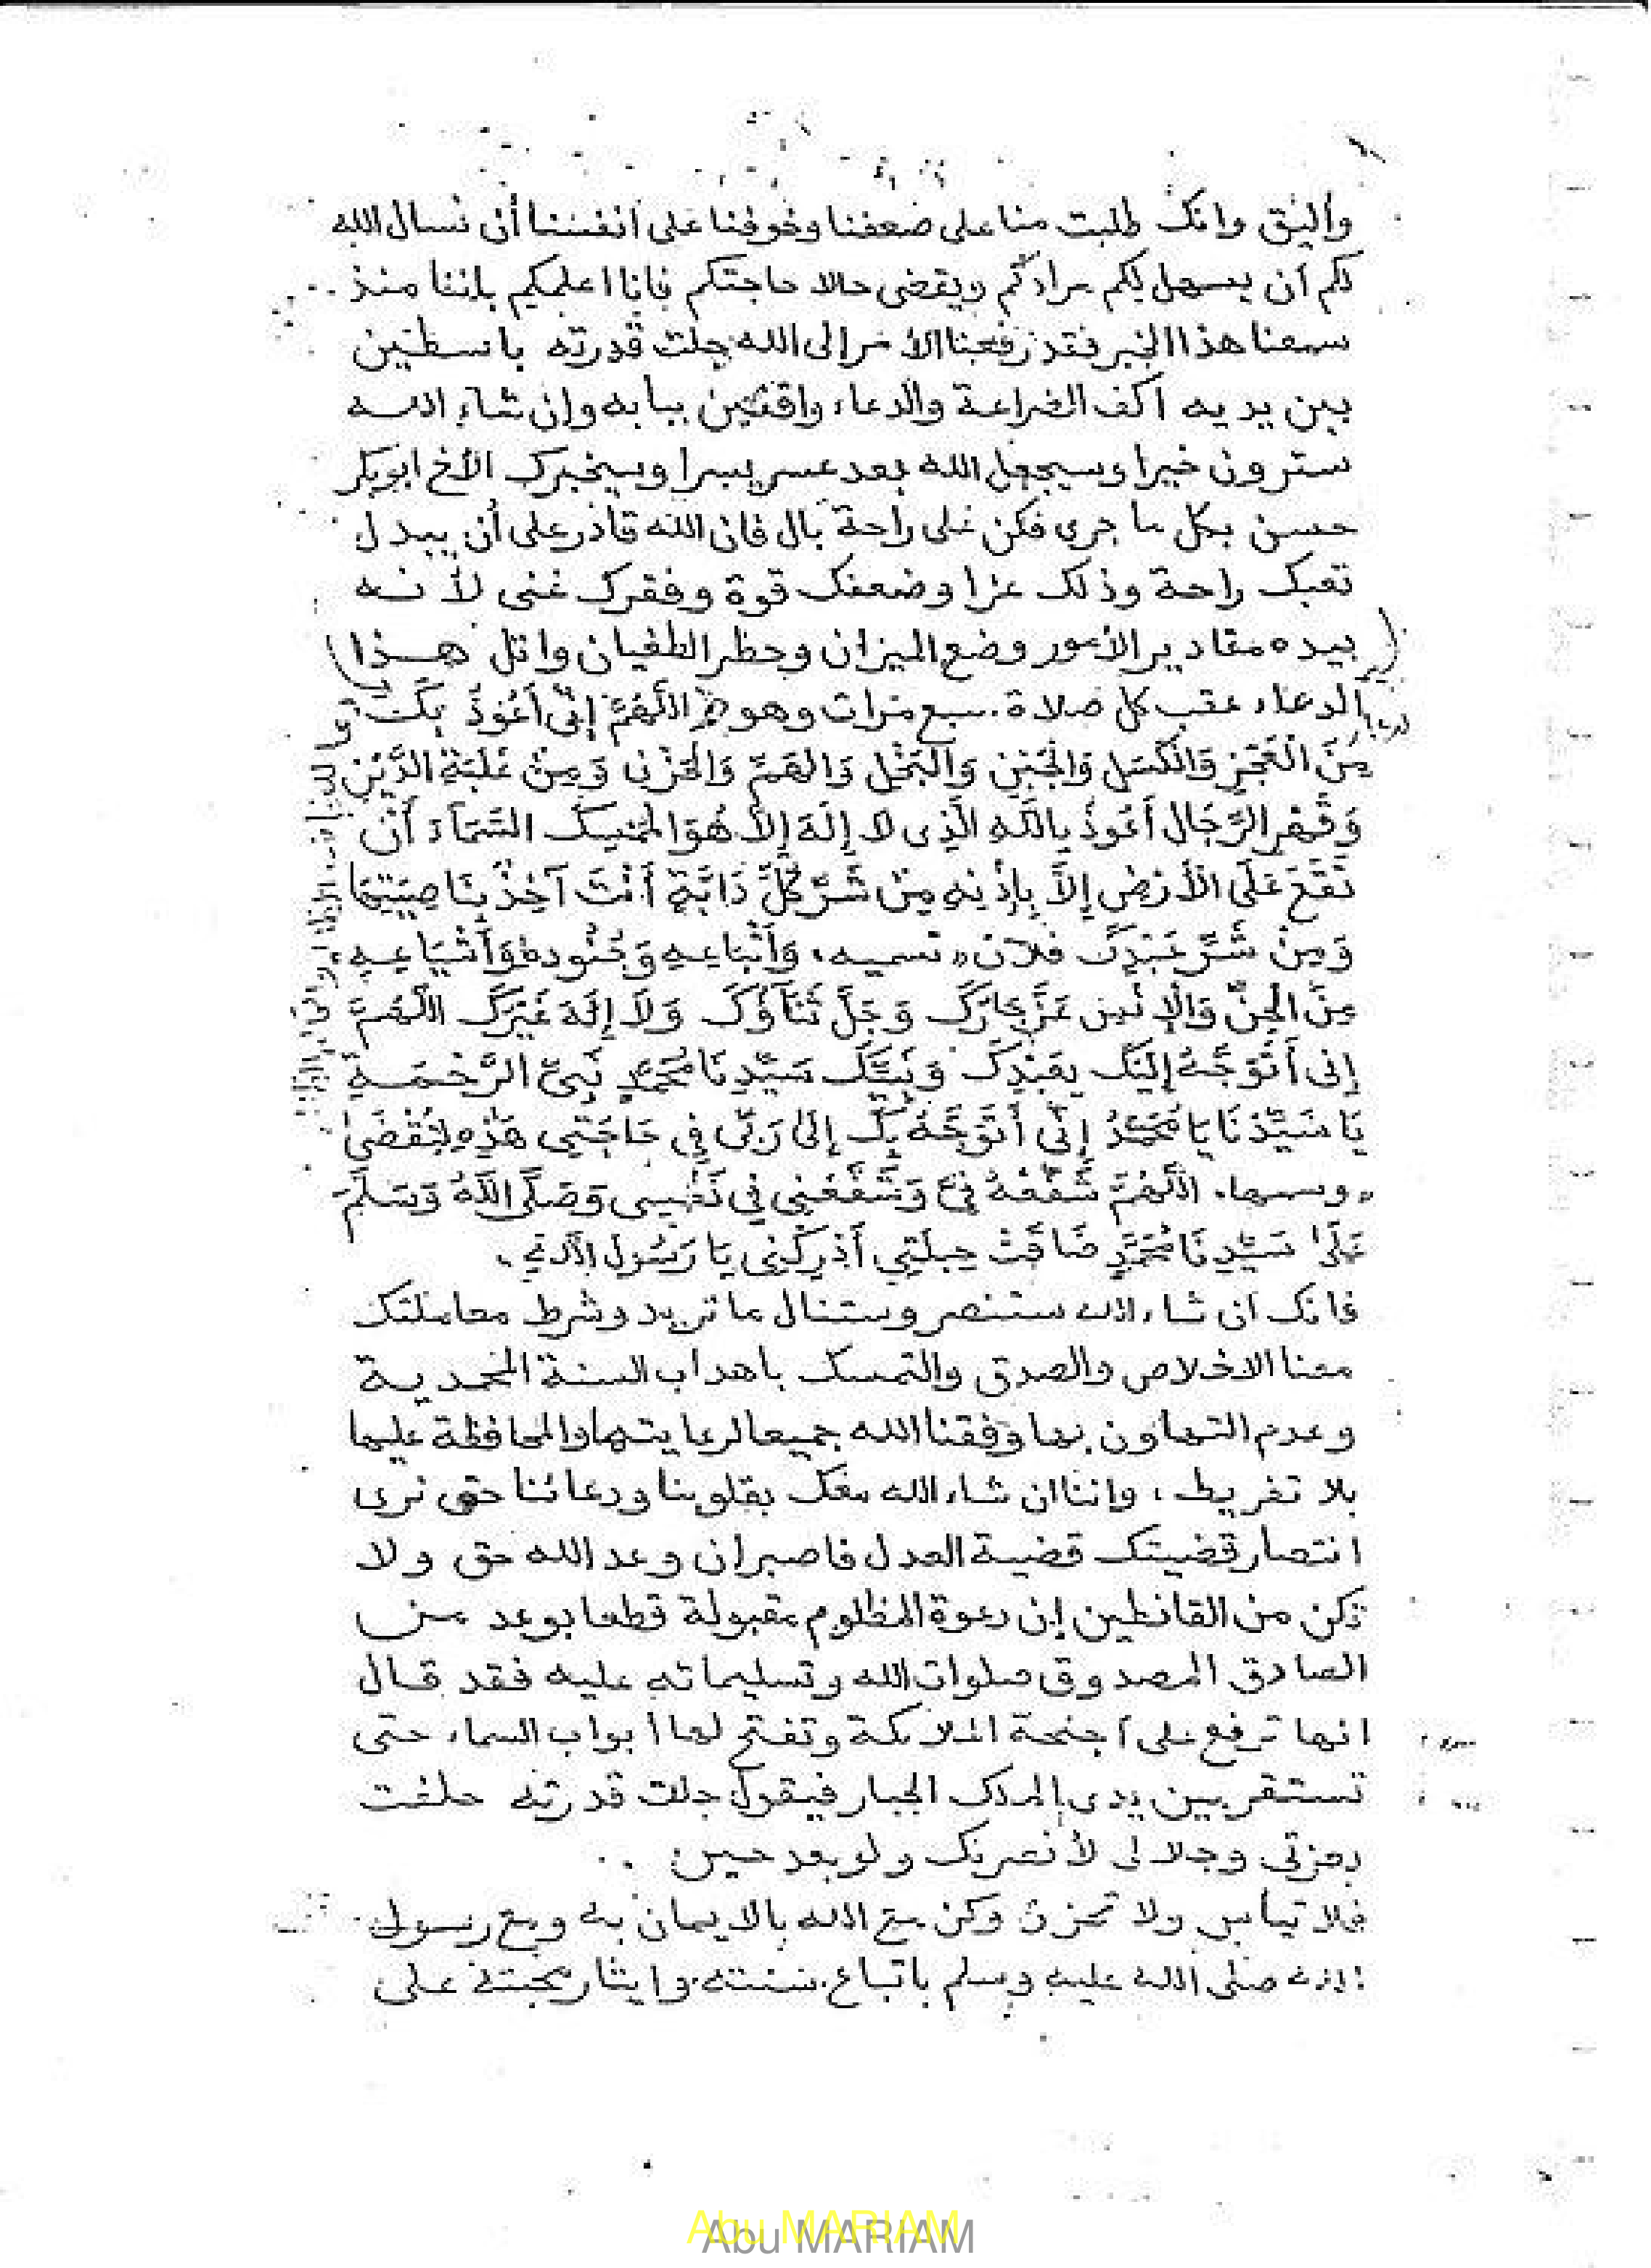 وأليق وانك طلبت منا على ضعفنا وخوفنا على انفسنا أن نسال الله
لكم ان يسهل لكم مرادكم ويقضى حالا حاجتكم فانا اعلمكم باننا منذ ..
سمعنا هذا الخبر فقد رفعنا الأمر إلى الله جلت قدرته باسطين
بين يديه أكف الضراعة والدعاء واقفين ببابه وإن شاء الله
سترون خيرا وسيجعل الله بعد عسر يسرا وسيخبرك الأخ ابوبكر
حسن بكل ما جرى فكن على راحة بال فان الله قادر على أن يبدل
تعبك راحة وذلك عزا وضعفك قوة وفقرك غنى لأنه
بيده مقادير الأمور وضع الميزان وحظر الطغيان واتل هذا
الدعاء عقب كل صلاة سبع مرات وهو اللَّهُمَّ إِنِّي أَعُوذُ بِكَ
مِنَ الْعَجْزِ وَالْكَسَلِ وَالْجُبْنِ وَالْبُخْلِ وَالْهَمِّ وَالْحَزَنِ وَمِنْ غَلَبَةِ الدَّيْنِ
وَقَهْرِ الرِّجَالِ أَعُوذُ بِاللَّهِ الَّذِى لَا إِلَهَ إِلَّا هُوَ الْمُمْسِكُ السَّمَآءَ أَنْ
تَقَعَ عَلَى الْأَرْضِ إِلَّا بِإِذْنِهِ مِنْ شَرِّ كُلِّ دَابَّةٍ أَنْتَ آخِذٌ بِنَاصِيَتِهَا
وَمِنْ شَرِّ عَبْدِكَ فلان «تسميه» وَأَتْبَاعِهِ وَجُنُودِهِ وَأَشْيَاعِهِ
مِنَ الْجِنِّ وَالْإِنْسِ عَزَّ جَارُكَ وَجَلَّ ثَنَآؤُكَ وَلَا إِلَهَ غَيْرُكَ اللَّهُمَّ
إِنِّى أَتَوَجَّهُ إِلَيْكَ بِعَبْدِكَ وَنَبِيِّكَ سَيِّدِنَا مُحَمَّدٍ نَبِيِّ الرَّحْمَةِ
يَا سَيِّدَنَا يَا مُحَمَّدُ إِنِّى أَتَوَجَّهُ بِكَ إِلَى رَبِّى فِي حَاجَتِي هَذِهِ لِتُقْضَى
«وسمها» اللَّهُمَّ شَفِّعْهُ فِيَّ وَشَفِّعْنِي فِي نَفْسِي وَصَلَّى اللَّهُ وَسَلَّمَ
عَلَى سَيِّدِنَا مُحَمَّدٍ ضَاقَتْ حِيلَتِي أَدْرِكْنِى يَا رَسُولَ اللَّهِ .
فانك ان شاء الله ستنصر وستنال ما تريد وشرط معاملتك
معنا الاخلاص والصدق والتمسك باهداب السنة المحمدية
وعدم التهاون بها وفقنا الله جميعا لرعايتها والمحافظة عليها
بلا تفريط ، واننا ان شاء الله معك بقلوبنا ودعائنا حتى نرى
انتصار قضيتك قضية العدل فاصبر ان وعد الله حق ولا
تكن من القانطين إن دعوة المظلوم مقبولة قطعا بوعد من
الصادق المصدوق صلوات الله وتسليماته عليه فقد قال
انها ترفع على أجنحة الملائكة وتفتح لها أبواب السماء حتى
تستقر بين يدى الملك الجبار فيقول جلت قدرته حلفت
بعزتى وجلالى لأنصرنك ولو بعد حين . .
فلا تيأس ولا تحزن وكن مع الله بالايمان به ومع رسول
الله صلى الله عليه وسلم باتباع سنته وايثار محبته على
Abu MARIAM